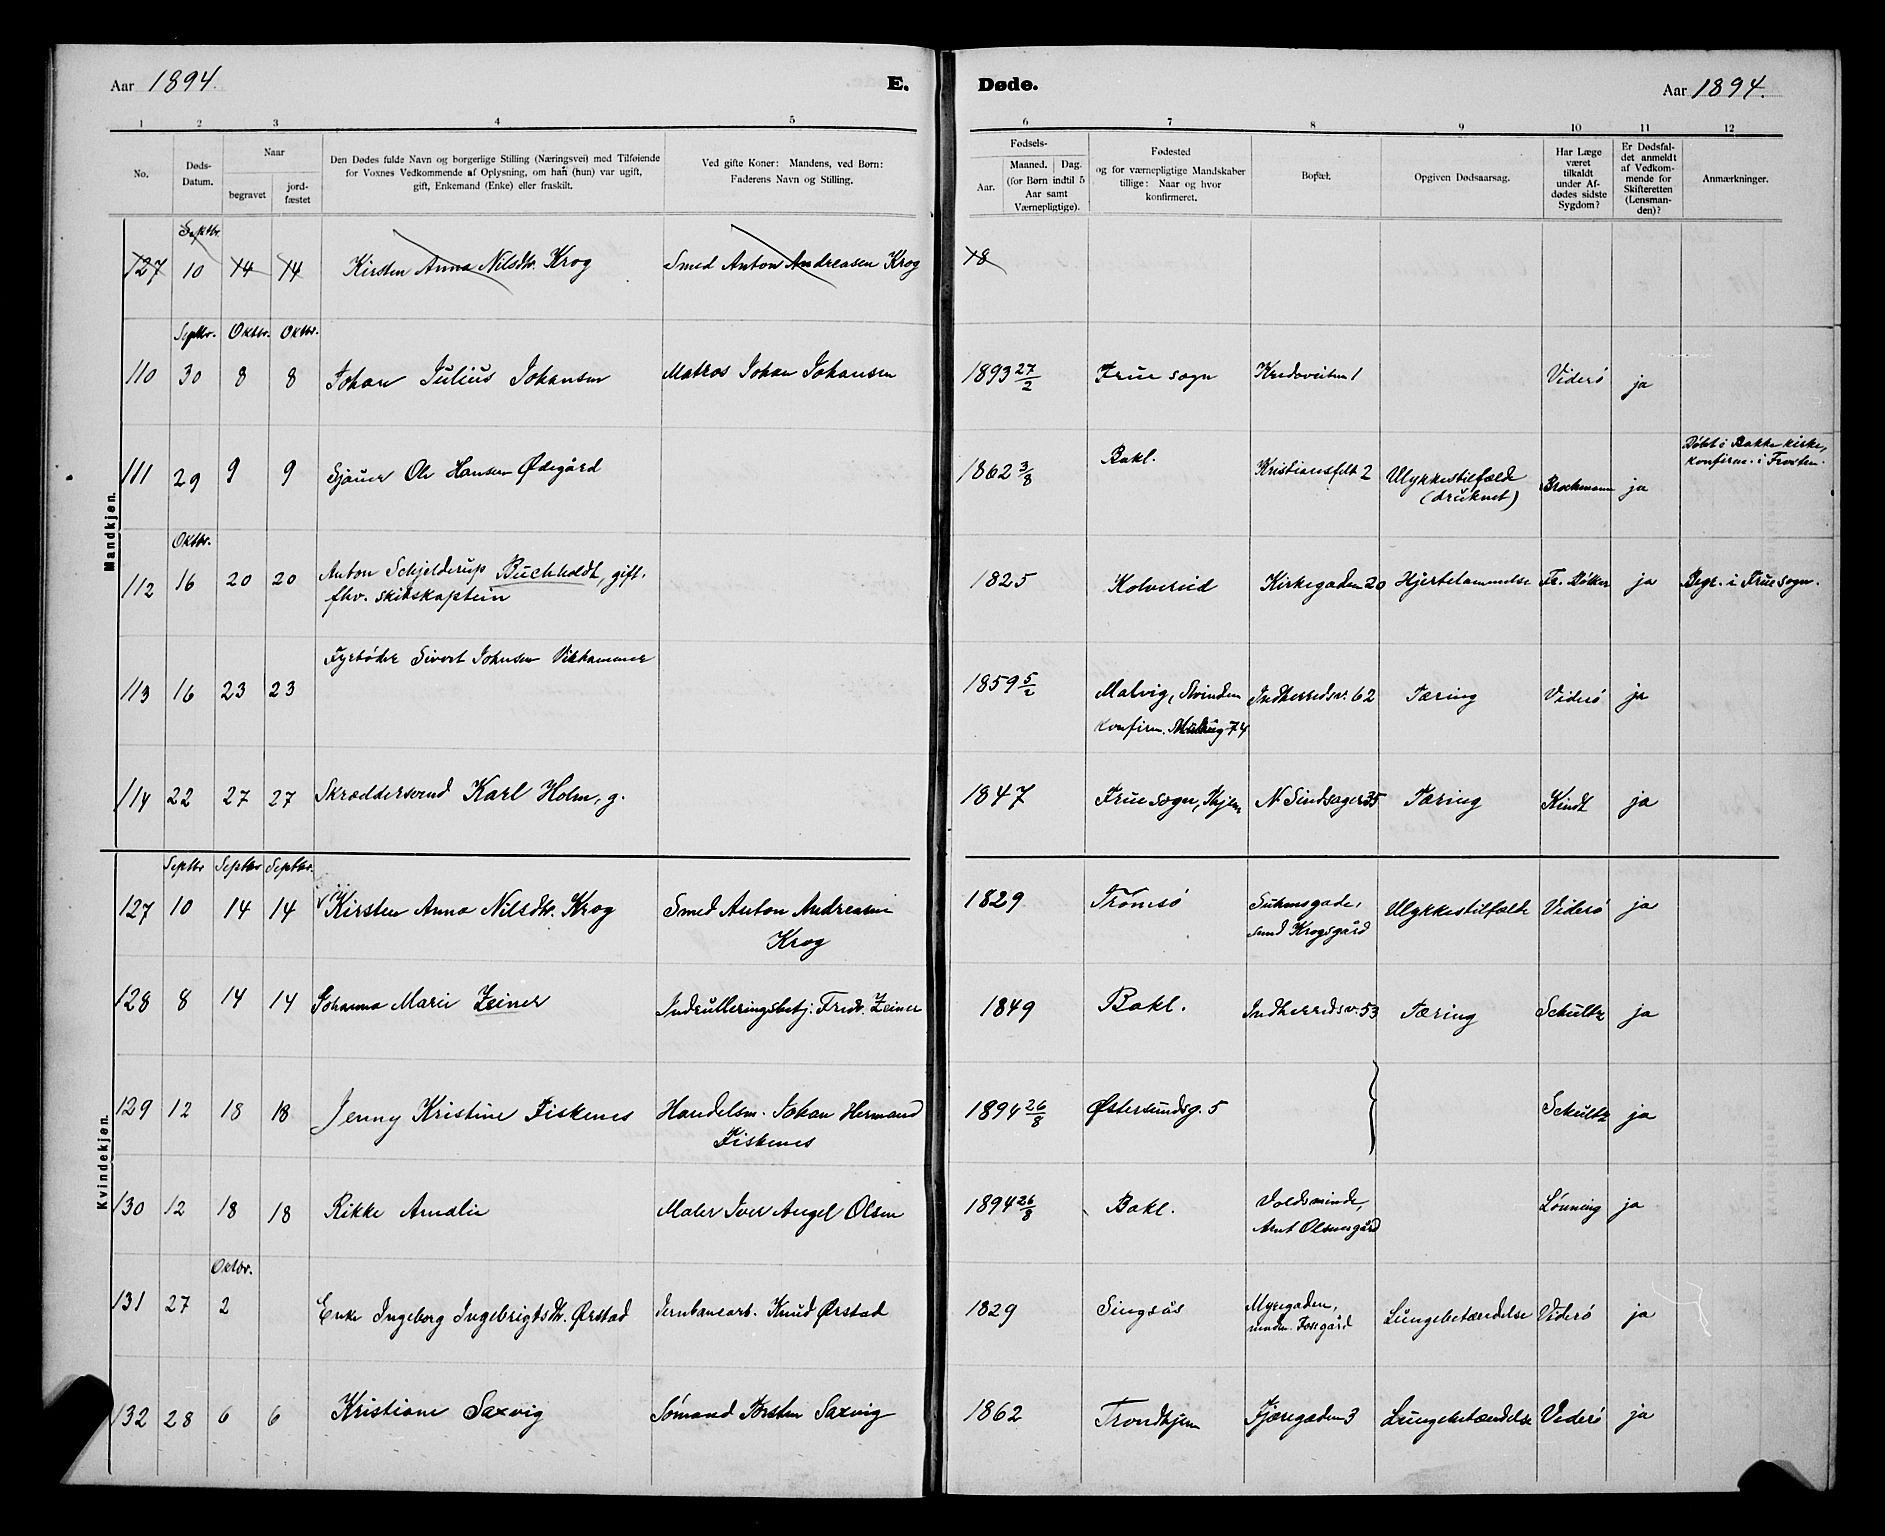 Aar 1894. E. Døde. Aar 1894.
1 2 3 4 5 6 7 8 9 10 11 12
No.
Døds-
Datum.
Naar
begravet
jord-
fæstet
Den Dødes fulde Navn og borgerlige Stilling (Næringsvei) med Tilføiende
for Voxnes Vedkommende af Oplysning, om han (hun) var ugift,
gift, Enkemand (Enke) eller fraskilt.
Ved gifte Koner: Mandens, ved Børn:
Faderens Navn og Stilling.
Fødsels-
Aar.
Maaned. Dag.
(for Børn indtil 5
Aar samt
Værnepligtige).
Fødested
og for værnepligtige Mandskaber
tillige: Naar og hvor
konfirmeret.
Bopæl.
Opgiven Dødsaarsag.
Har Læge
været
tilkaldt
under Af-
dødes sidste
Sygdom?
Er Dødsfal-
det anmeldt
af Vedkom-
mende for
Skifteretten
(Lensman-
den)?
Anmærkninger.
Mandkjøn.
Septbr.
127 10 14 14 Kirsten Anna Nilsdtr. Krog Smed Anton Andreasen Krog 18
Septbr. Oktbr. Oktbr.
110 30 8 8 Johan Julius Johansen Matros Johan Johansen 1893 27/2 Frue sogn 1 Viderö ja
Døbt i Bakke kirke,
konfirm. i Frosten.
111 29 9 9 Sjauer Ole Hansen Ødegård 1862 3/8 Bakl. Kristiansfelt 2 Ulykkestilfælde Brochmann ja
(druknet)
Oktbr.
112 16 20 20 Anton Schjelderup Buchholdt, gift. 1825 Kolvereid Kirkegaden 20 Hjertelammelse Fr. ja Begr. i Frue sogn.
fhv. skibskaptein
Fyrbøder Sivert Johnsen Vikhammer
113 16 23 23 1859 5/2 Malvig, Indherredsv. 62 Tæring Viderö ja
konfirm. 74
114 22 27 27 Skræddersvend Karl Holm, g. 1847 Frue sogn, 35 Tæring Kindt ja
Kvindekjøn.
Septbr Septbr Septbr.
127 10 14 14 Kirsten Anna Nilsdtr. Krog Smed Anton Andreasen 1829 Tromsö Ulykkestilfælde Viderö ja
Krog smed Krogsgård
128 8 14 14 Johanna Marie Zeiner Indrulleringsbetj. Fredr. Zeiner 1849 Bakl. Indherredsv. 53 Tæring Schultz ja
129 12 18 18 Jenny Kristine Fiskenes Handelsm. Johan Hermand 1894 26/8 Østersundsg. 5 Schultz ja
Fiskenes
130 12 18 18 Rikke Amalie Maler Iver Angel Olsen 1894 26/8 Bakl. Voldsminde, Lønning ja
Arnt Olsensgård
Oktbr.
131 27 2 Enke Ingeborg Ingebrigtsdtr. Ørstad Jernbanearb. Knud Ørstad 1829 Singsås Myregaden, Lungebetændelse Viderö ja
132 28 6 6 Kristiane Saxvig Sömand Torsten Saxvig 1862 Trondhjem Fjæregaden 3 Lungebetændelse Viderö ja